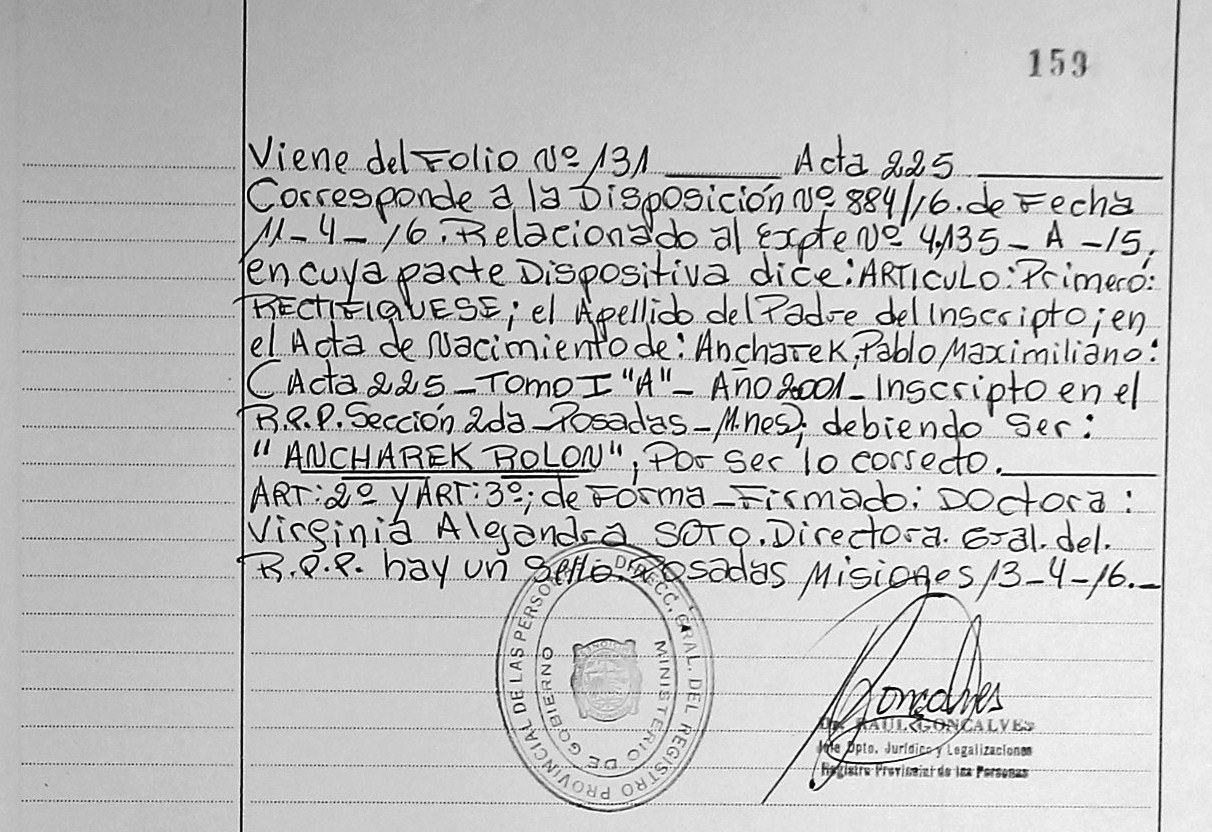 159
Viene del Folio Nº 131 ______ Acta 225 ______
Corresponde a la Disposición Nº 884/16. de Fecha
11-4-16. Relacionado al Expte Nº 4135-A-15,
en cuya parte Dispositiva dice: ARTICULO: Primero:
RECTIFIQUESE; el Apellido del Padre del Inscripto; en
el Acta de Nacimiento de: Ancharek, Pablo Maximiliano:
(Acta 225 - Tomo I "A" - Año 2001 - Inscripto en el
R.P.P. Sección 2da - Posadas - Mnes); debiendo Ser:
"ANCHAREK ROLON", Por ser lo correcto. ______
ART: 2º y ART: 3º; de Forma - Firmado: Doctora:
Virginia Alejandra SOTO. Directora. Gral. del.
R.P.P. hay un Sello. Posadas Misiones 13-4-16.-
DIRECC. GRAL. DEL REGISTRO PROVINCIAL DE LAS PERSONAS
MINISTERIO DE GOBIERNO
Goncalves
Dr. RAUL GONCALVES
Jefe Dpto. Jurídico y Legalizaciones
Registro Provincial de las Personas